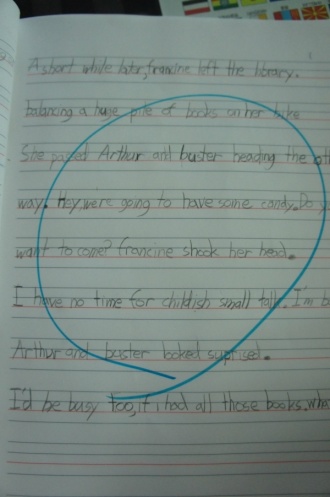 A short while later, francine left the library.
balancing a huge pile of books on her bike
She passed Arthur and buster heading the oth
way. Hey, were going to have some candy. Do y
want to come? francine shook her head.
I have no time for childish small talk. I'm b
Arthur and buster looked suprised.
I'd be busy too, if i had all those books. wha